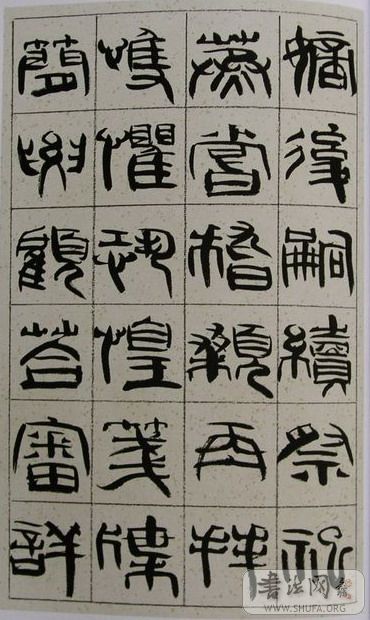 嫡後嗣續祭祀
蒸嘗稽顙再拜
悚懼恐惶箋牒
簡要顧答審詳
書法网
WWW.SHUFA.ORG